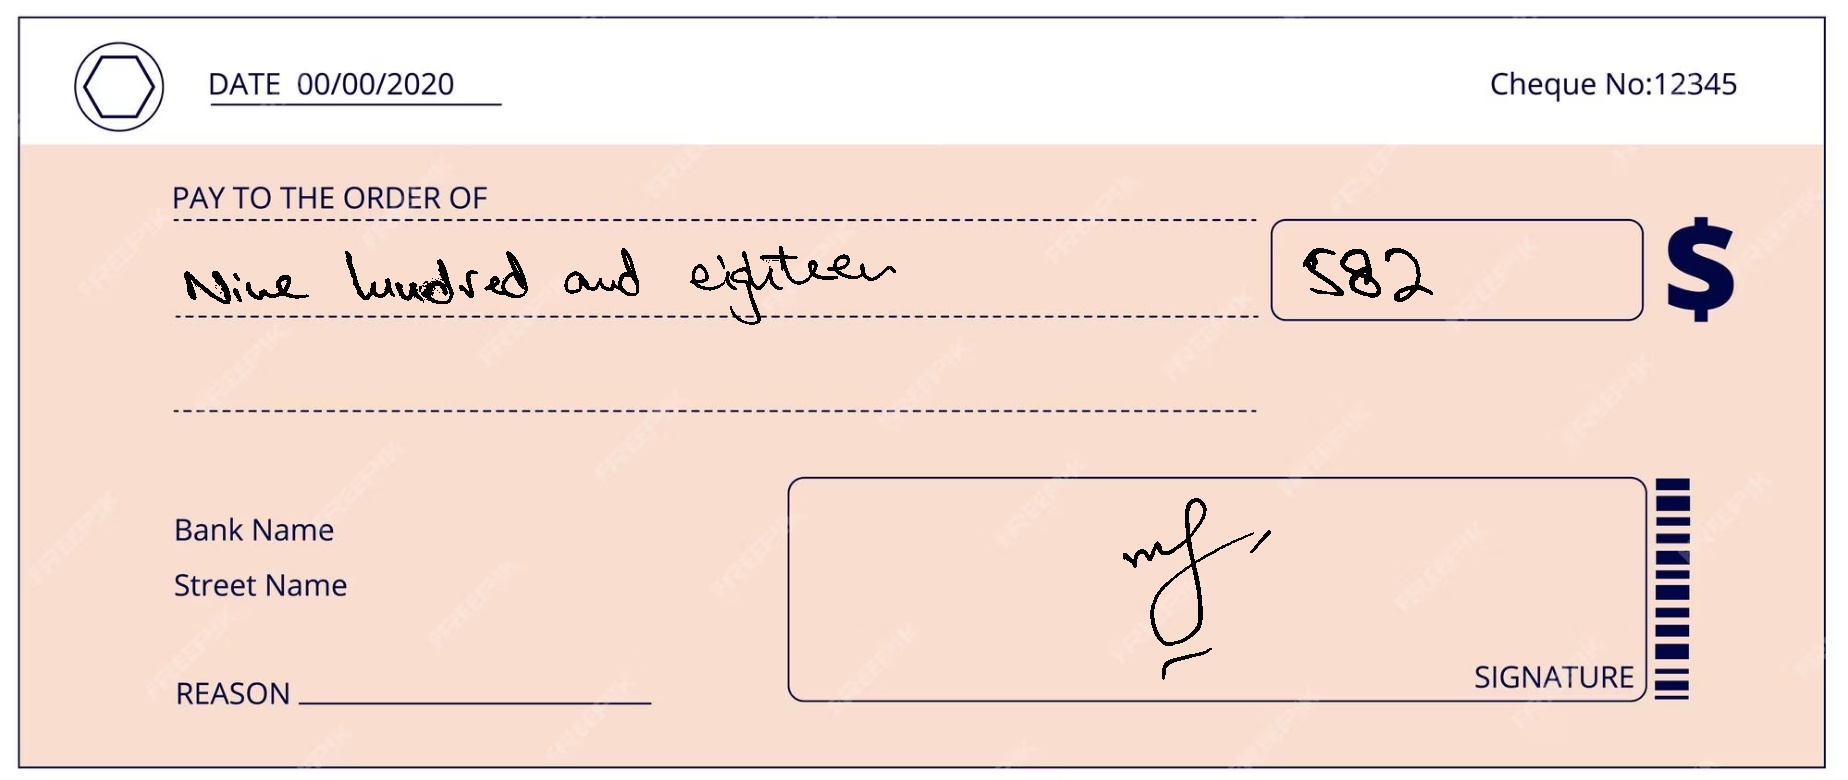 DATE 00/00/2020
Cheque No:12345
PAY TO THE ORDER OF
Nine hundred and eighteen
582
$
Bank Name
Street Name
REASON
SIGNATURE